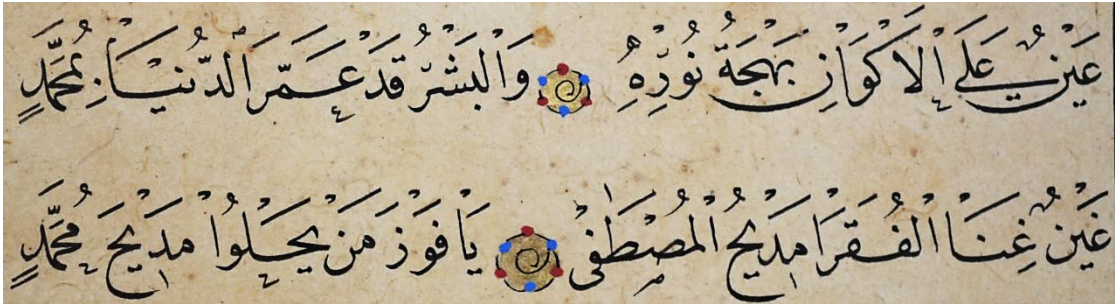 عَيْنٌ عَلَى الْأَكْوَانِ بَهْجَةُ نُورِهِ وَالْبَشْرُ قَدْ عَمَّرَ الدُّنْيَا بِمُحَمَّدٍ
غَيْنٌ غِنَا الْفُقَرَا مَدِيحُ الْمُصْطَفَى يَا فَوْزَ مَنْ يَحْلُوا مَدِيحَ مُحَمَّدٍ